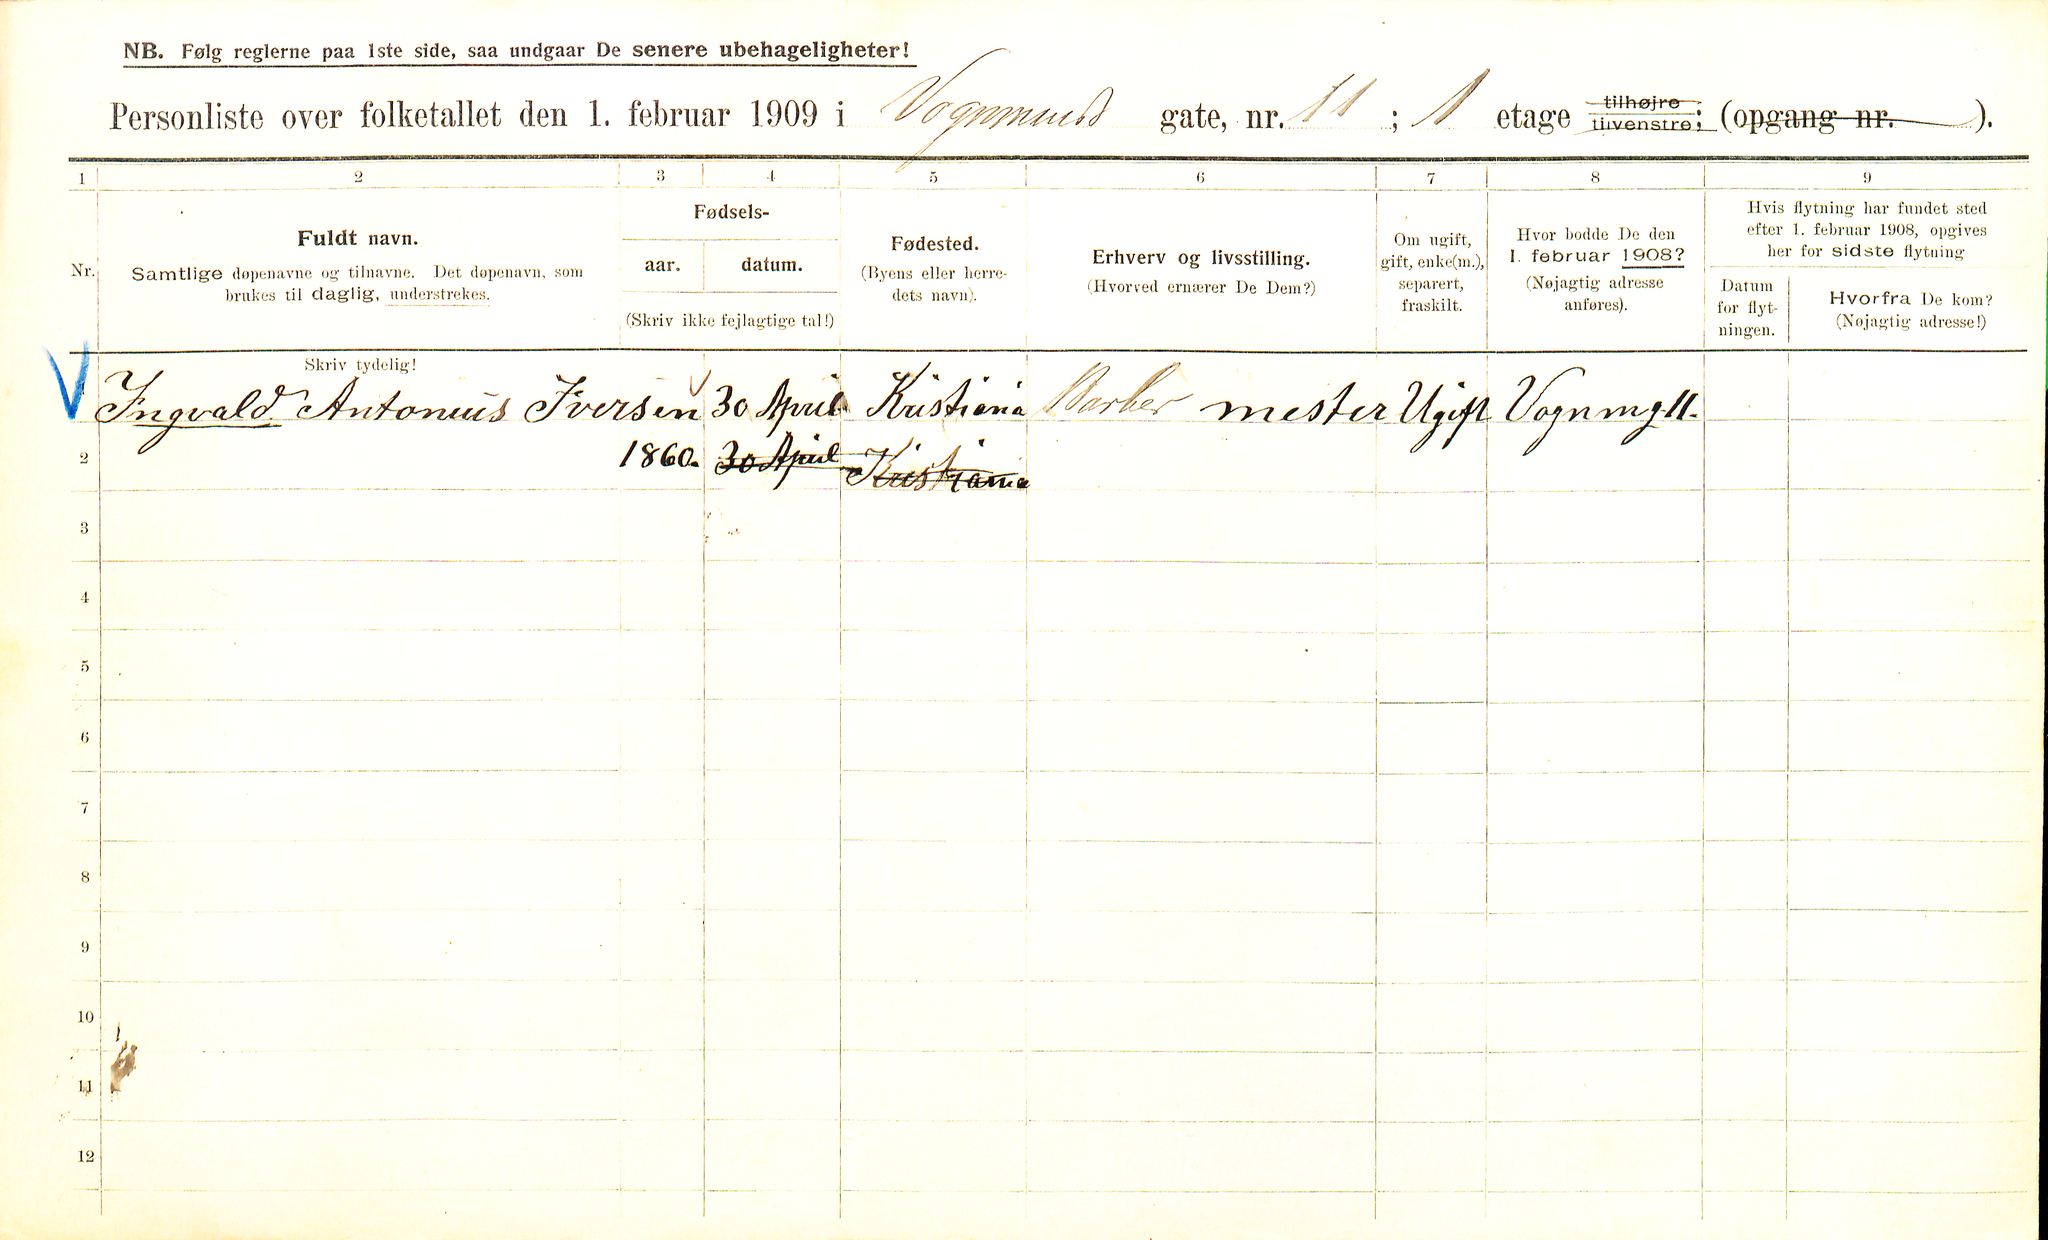 NB. Følg reglerne paa 1ste side, saa undgaar De senere ubehageligheter!
Personliste over folketallet den 1. februar 1909 i Vognmands gate, nr. 11 ; 1 etage tilhøjre tilvenstre; (opgang nr. ).
1 2 3 4 5 6 7 8 9
Nr.
Fuldt navn.
Samtlige døpenavne og tilnavne. Det døpenavn, som
brukes til daglig, understrekes.
Fødsels-
aar. datum.
(Skriv ikke fejlagtige tal!)
Fødested.
(Byens eller herre-
dets navn).
Erhverv og livsstilling.
(Hvorved ernærer De Dem?)
Om ugift,
gift, enke(m.),
separert,
fraskilt.
Hvor bodde De den
1. februar 1908?
(Nøjagtig adresse
anføres).
Hvis flytning har fundet sted
efter 1. februar 1908, opgives
her for sidste flytning
Datum
for flyt-
ningen.
Hvorfra De kom?
(Nøjagtig adresse!)
Skriv tydelig!
1 Ingvald Antonius Iversen 30 April Kristiania Barber mester Ugift Vognmg. 11.
2 1860. 30 April Kristiania
3
4
5
6
7
8
9
10
11
12